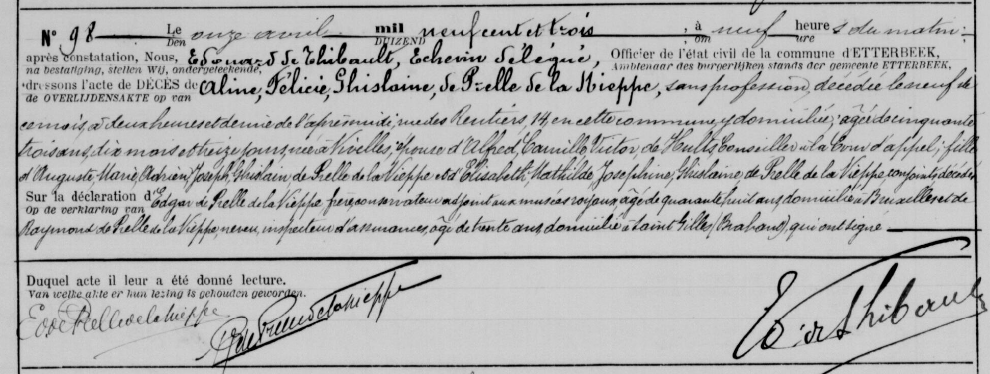 N° 98 Le onze avril mil neuf cent et trois ; à neuf heures du matin.
Den DUIZEND ; om ure
après constatation, Nous, Edouard de Thibault, Echevin délégué, Officier de l'état civil de la commune d'ETTERBEEK,
na bestatiging, stellen Wij, ondergeteekende, Ambtenaar des burgerlijken stands der gemeente ETTERBEEK,
dressons l'acte de DÉCÈS de Aline, Félicie, Ghislaine, de Prelle de la Nieppe, sans profession, décédée le neuf de
de OVERLIJDENSAKTE op van
ce mois, à deux heures et demie de l'après midi, rue des Rentiers, 14, en cette commune, y domiciliée; âgée de cinquante
trois ans, dix mois et treize jours née à Nivelles; épouse d'Alfred, Camille, Victor, de Hults, Conseiller à la Cour d'appel; fille
d'Auguste, Marie, Adrien, Joseph, Ghislain de Prelle de la Nieppe et d'Elisabeth, Mathilde, Josephine, Ghislaine, de Prelle de la Nieppe conjoints, décédés
Sur la déclaration d'Edgar de Prelle de la Nieppe, frère, conservateur adjoint aux musées royaux, âgé de quarante huit ans domicilié à Bruxelles et de
Op de verklaring van
Raymond de Prelle de la Nieppe, neveu, inspecteur d'assurances, âgé de trente ans domicilié à Saint Gilles (Brabant), qui ont signé
Duquel acte il leur a été donné lecture.
Van welke akte er hun lezing is gehouden geworden.
E de Prelle de la Nieppe R de Prelle de la Nieppe Ed de Thibault